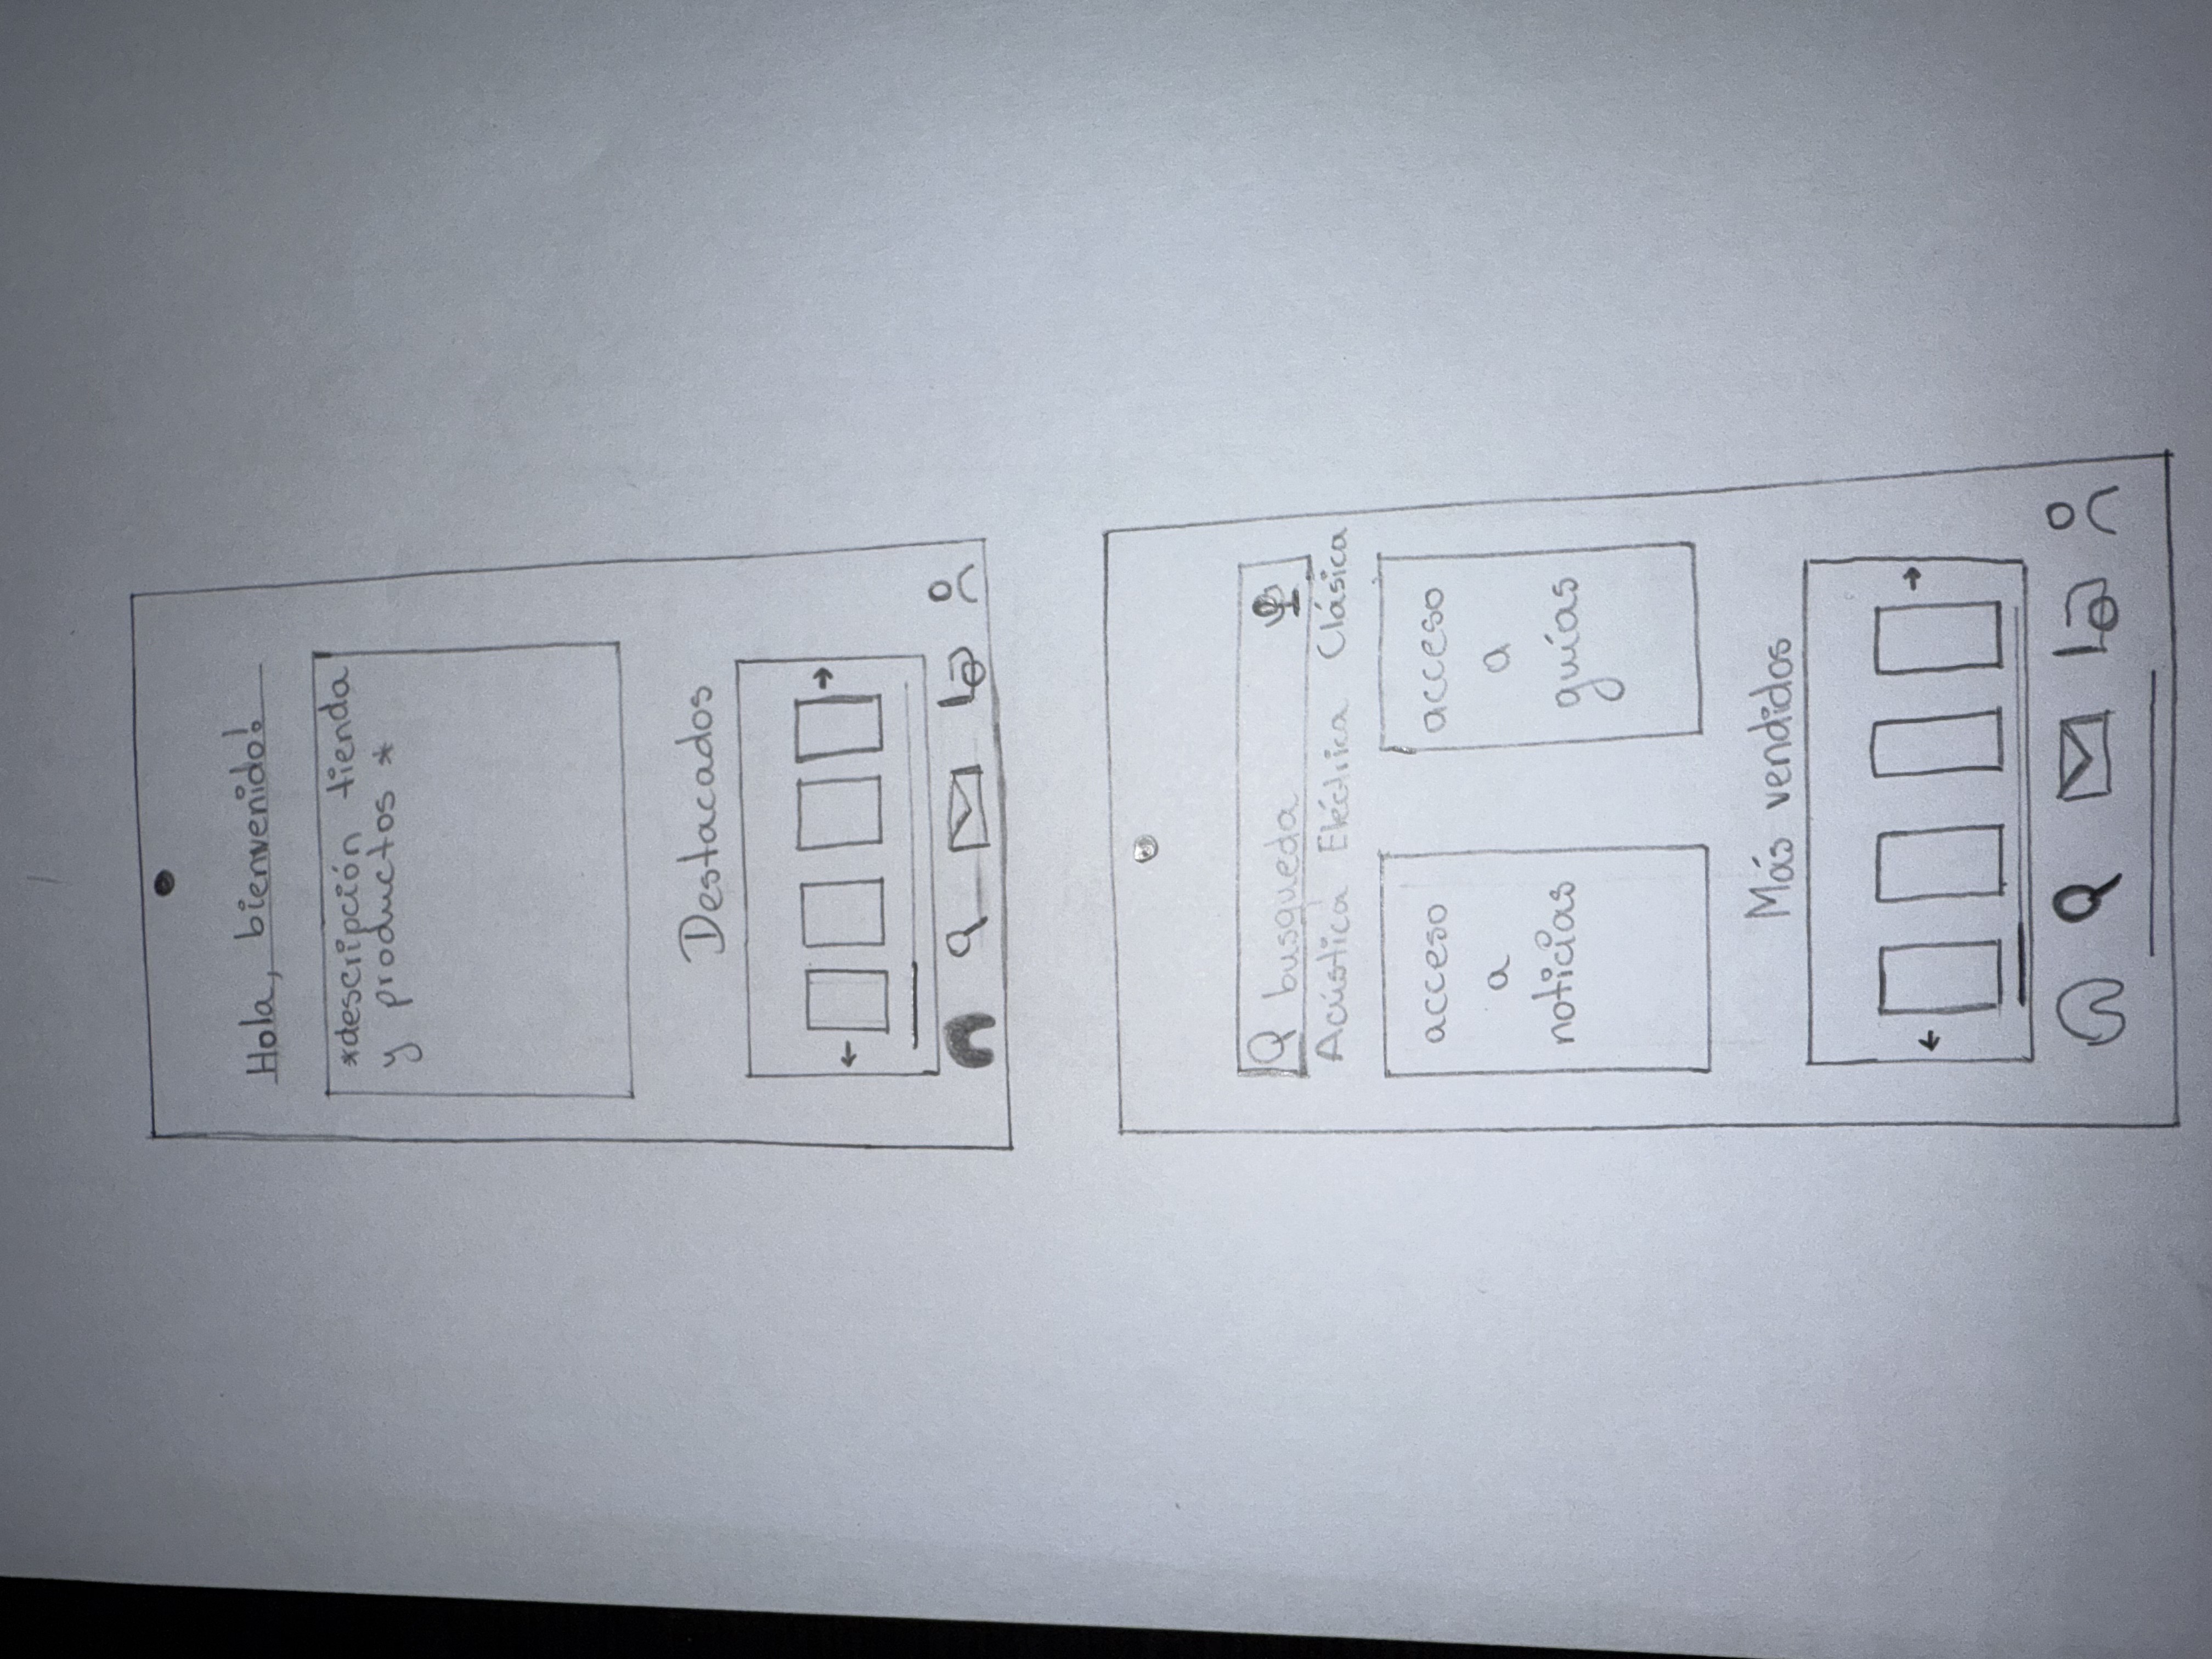 Hola, bienvenido!
*descripción tienda
y productos *
Destacados
busqueda
Acústica Eléctrica Clásica
acceso
a
noticias
acceso
a
guías
Más vendidos